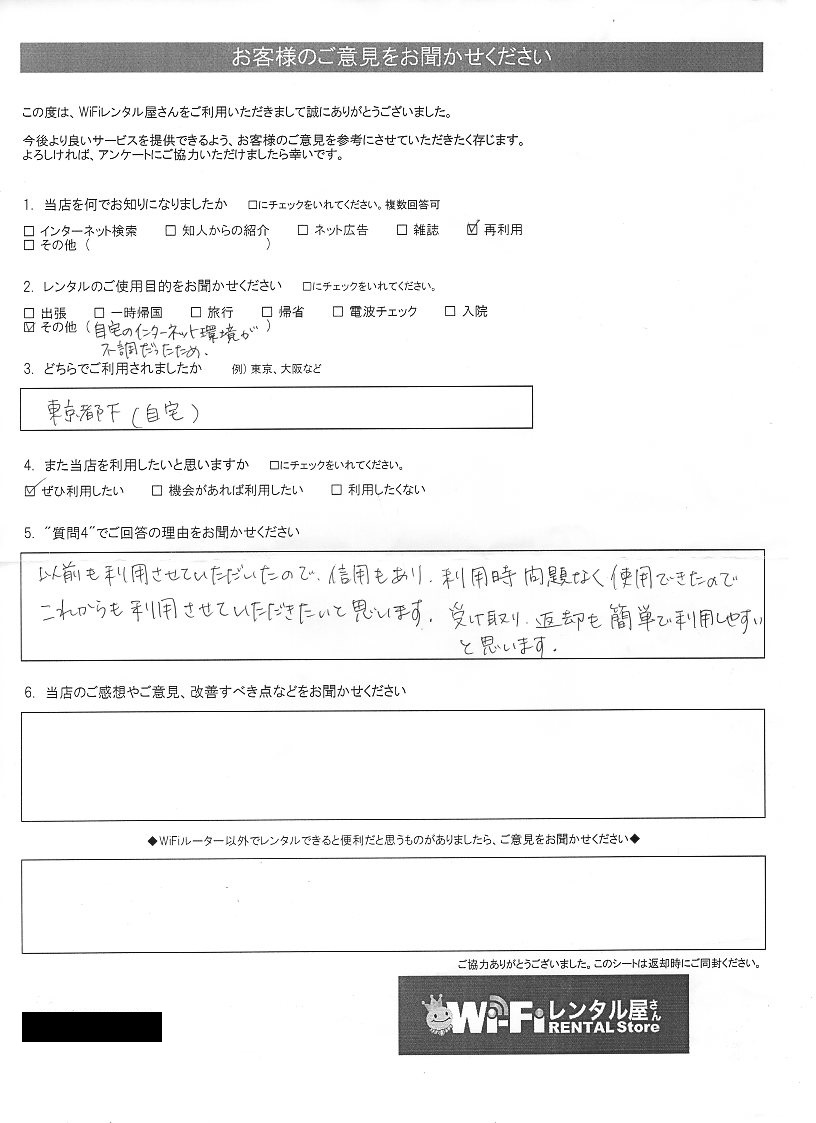 お客様のご意見をお聞かせください
この度は、WiFiレンタル屋さんをご利用いただきまして誠にありがとうございました。
今後より良いサービスを提供できるよう、お客様のご意見を参考にさせていただきたく存じます。
よろしければ、アンケートにご協力いただけましたら幸いです。
1. 当店を何でお知りになりましたか □にチェックをいれてください。複数回答可
□ インターネット検索 □ 知人からの紹介 □ ネット広告 □ 雑誌 ☑ 再利用
□ その他 ( )
2. レンタルのご使用目的をお聞かせください □にチェックをいれてください。
□ 出張 □ 一時帰国 □ 旅行 □ 帰省 □ 電波チェック □ 入院
☑ その他 (自宅のインターネット環境が )
不調だったため.
3. どちらでご利用されましたか 例) 東京、大阪など
東京都下 (自宅)
4. また当店を利用したいと思いますか □にチェックをいれてください。
☑ ぜひ利用したい □ 機会があれば利用したい □ 利用したくない
5. "質問4"でご回答の理由をお聞かせください
以前も利用させていただいたので、信用もあり、利用時問題なく使用できたので
これからも利用させていただきたいと思います. 受け取り、返却も簡単で利用しやすい
と思います.
6. 当店のご感想やご意見、改善すべき点などをお聞かせください
◆WiFiルーター以外でレンタルできると便利だと思うものがありましたら、ご意見をお聞かせください◆
ご協力ありがとうございました。このシートは返却時にご同封ください。
Wi-Fiレンタル屋さん
RENTAL Store